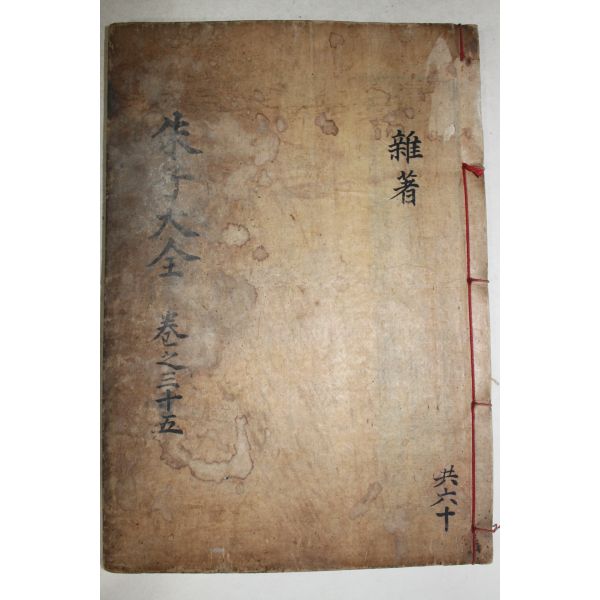 雜著
共六十
朱子大全 卷之三十五